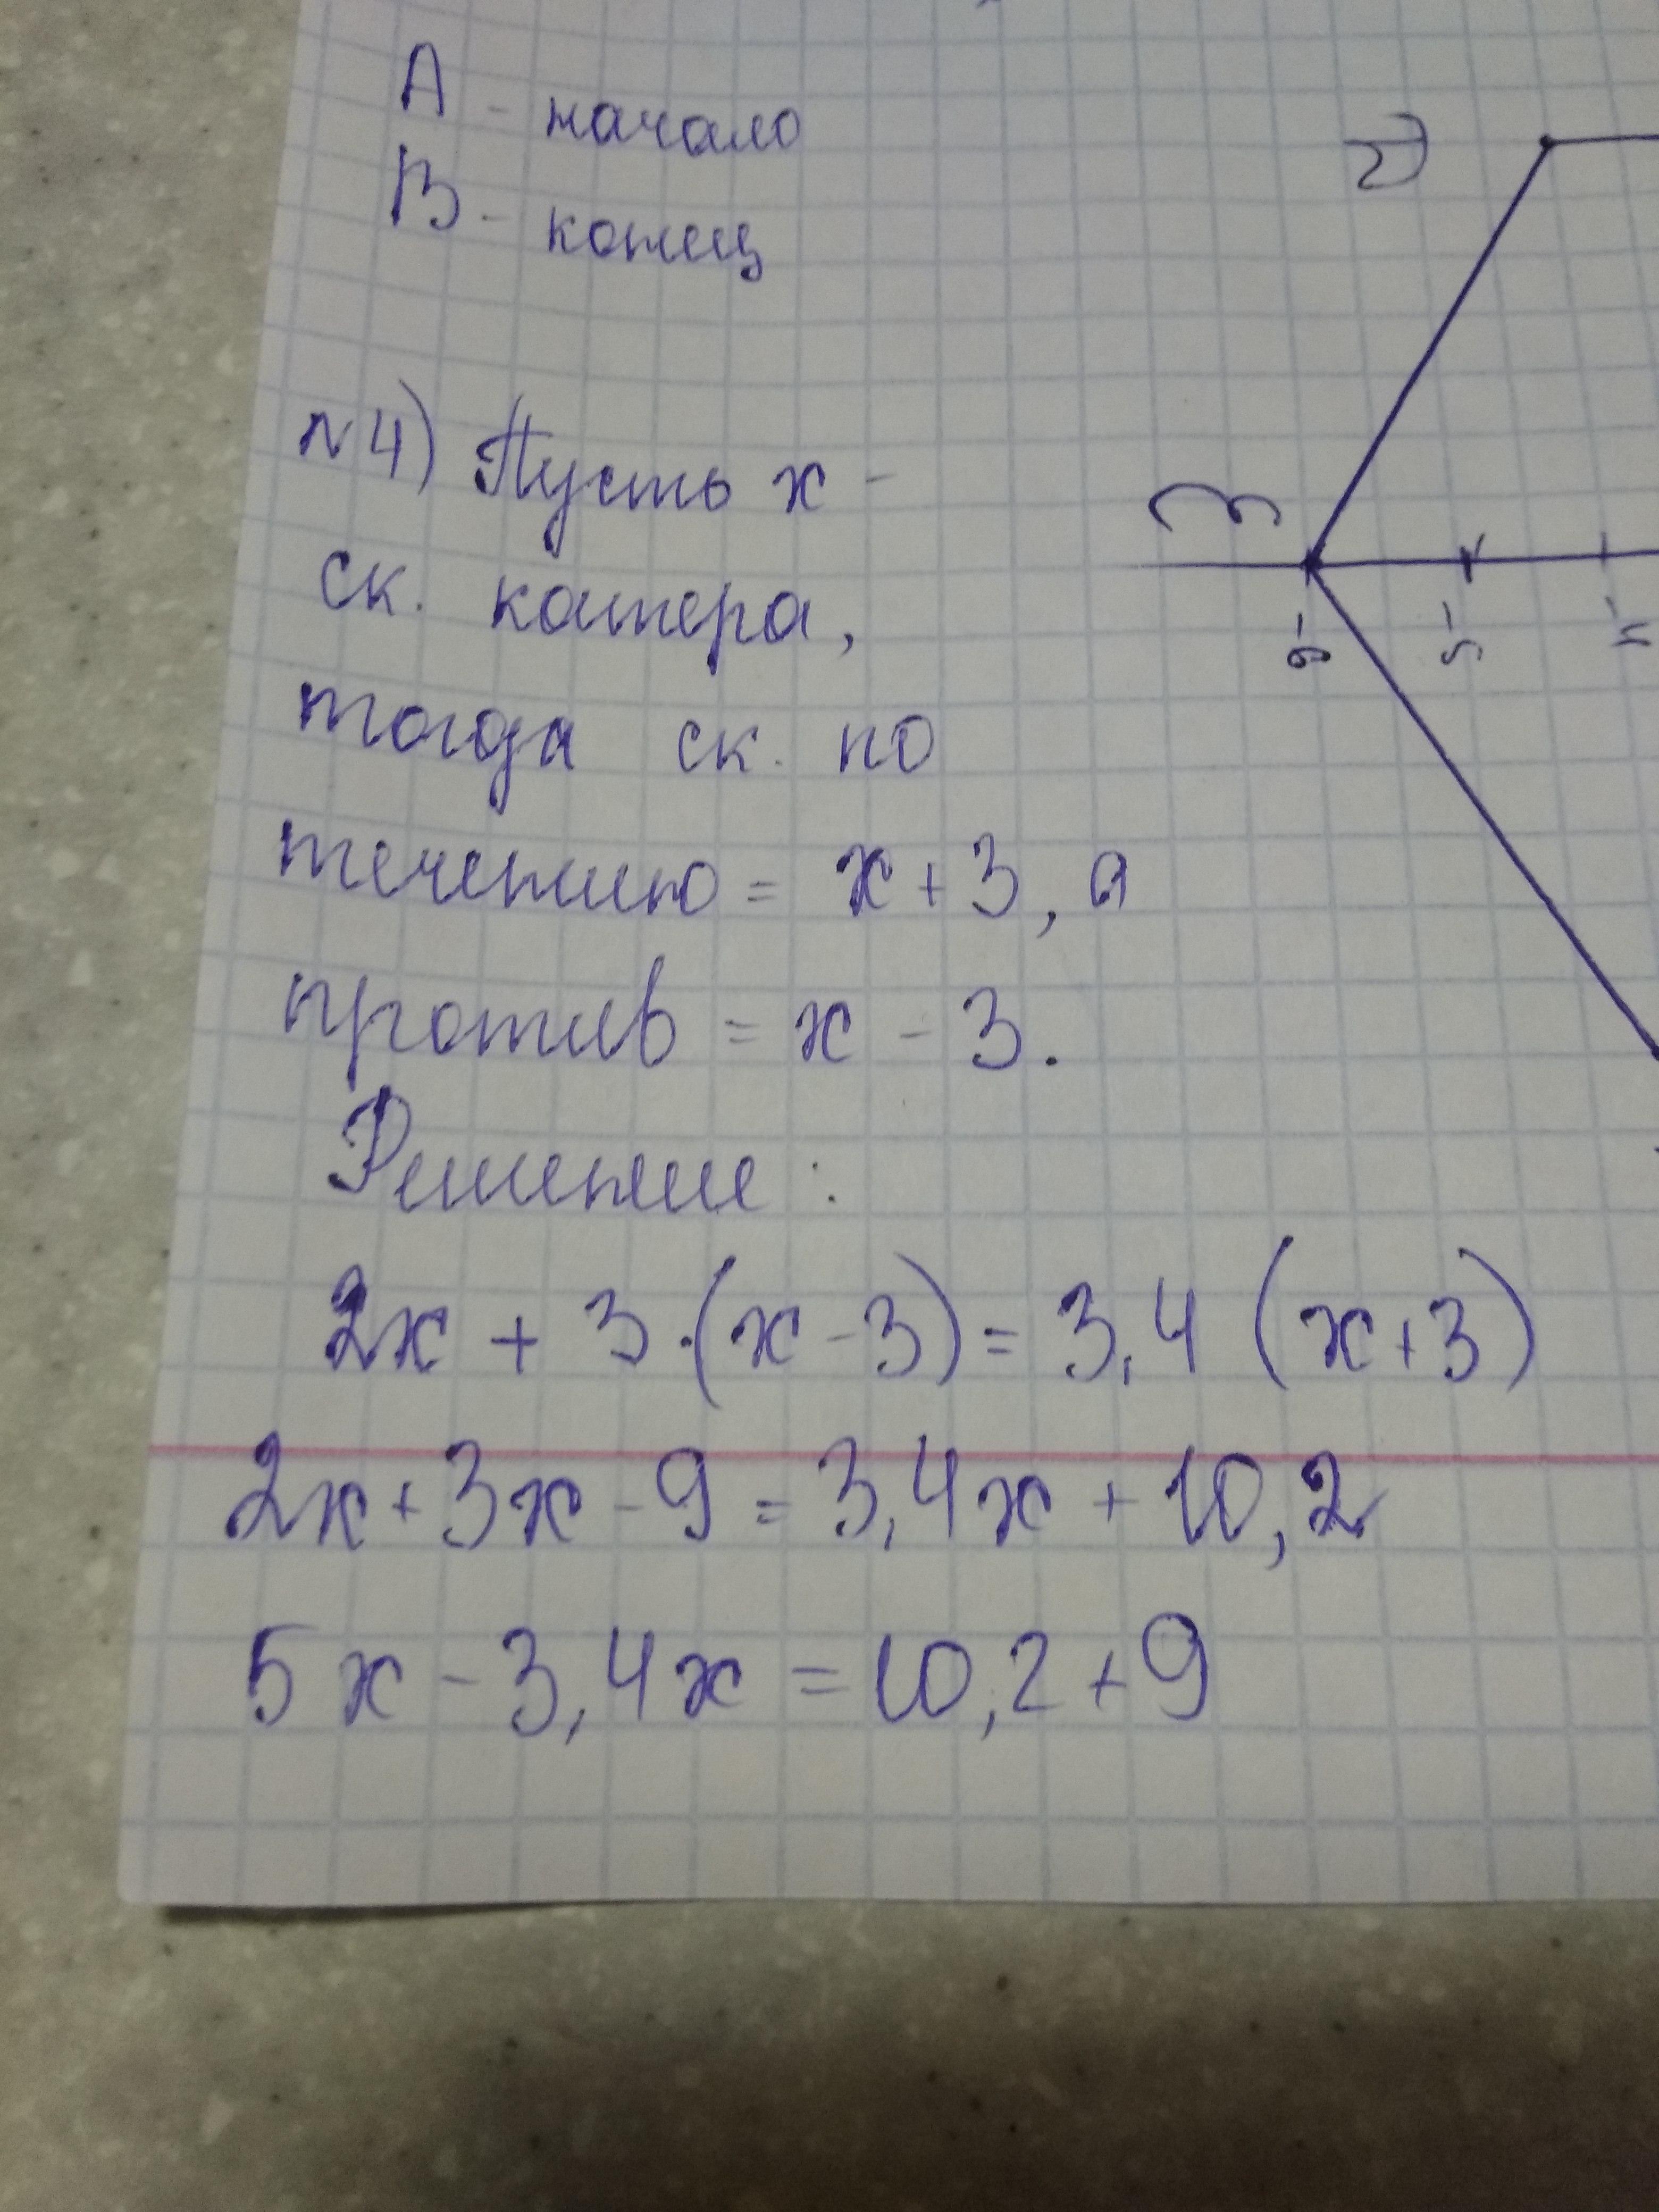 А - начало
В - конец
n 4) Пусть х -
ск. катера,
тогда ск. по
течению = х + 3, а
против = х - 3.
Решение :
2х + 3·(х - 3) = 3,4 (х + 3)
2х + 3х - 9 = 3,4х + 10,2
5х - 3,4х = 10,2 + 9
2)
-6 -5